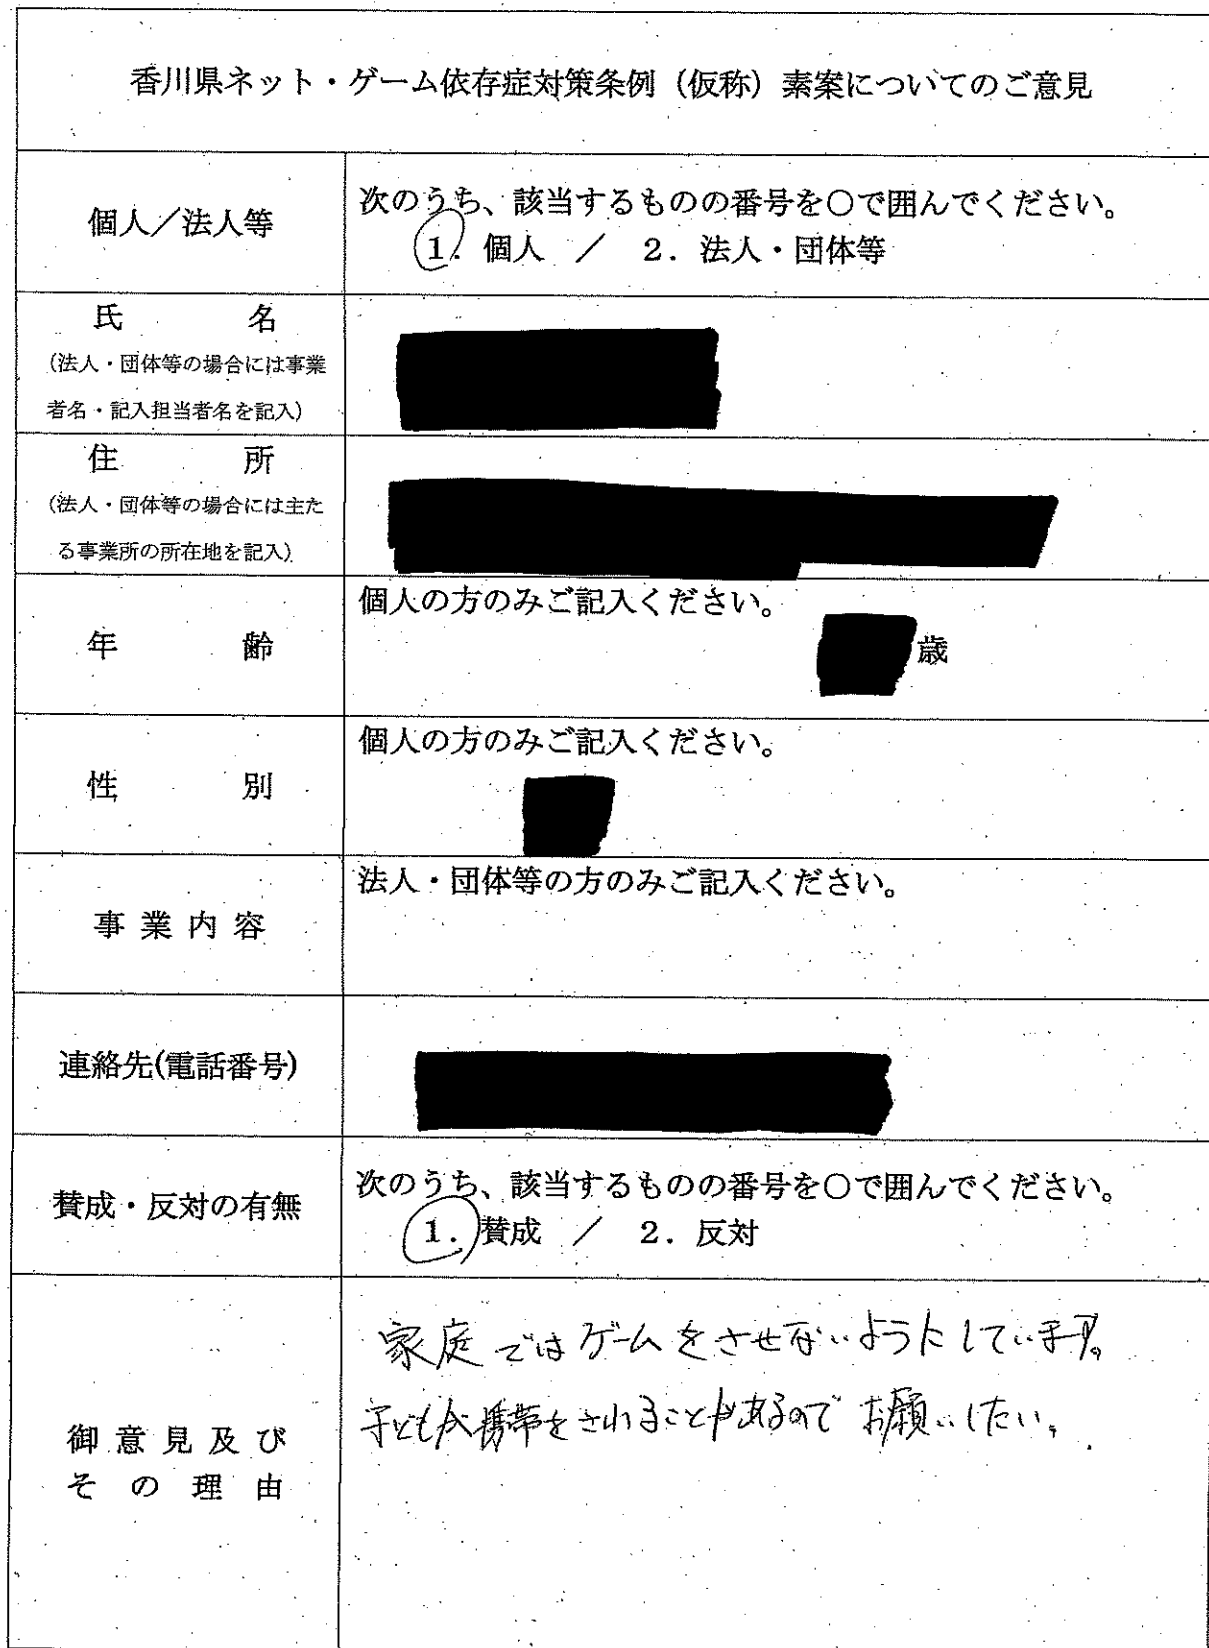 香川県ネット・ゲーム依存症対策条例（仮称）素案についてのご意見
個人／法人等
次のうち、該当するものの番号を○で囲んでください。
1. 個人 ／ 2. 法人・団体等
氏 名
（法人・団体等の場合には事業
者名・記入担当者名を記入）
住 所
（法人・団体等の場合には主た
る事業所の所在地を記入）
年 齢
個人の方のみご記入ください。
歳
性 別
個人の方のみご記入ください。
事業内容
法人・団体等の方のみご記入ください。
連絡先(電話番号)
賛成・反対の有無
次のうち、該当するものの番号を○で囲んでください。
1. 賛成 ／ 2. 反対
御意見及び
その理由
家庭ではゲームをさせないようにしています。
子どもが携帯をされることがあるので お願いしたい。